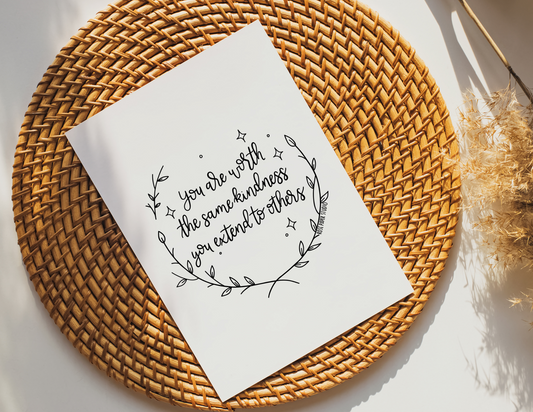 you are worth
the same kindness
you extend to others